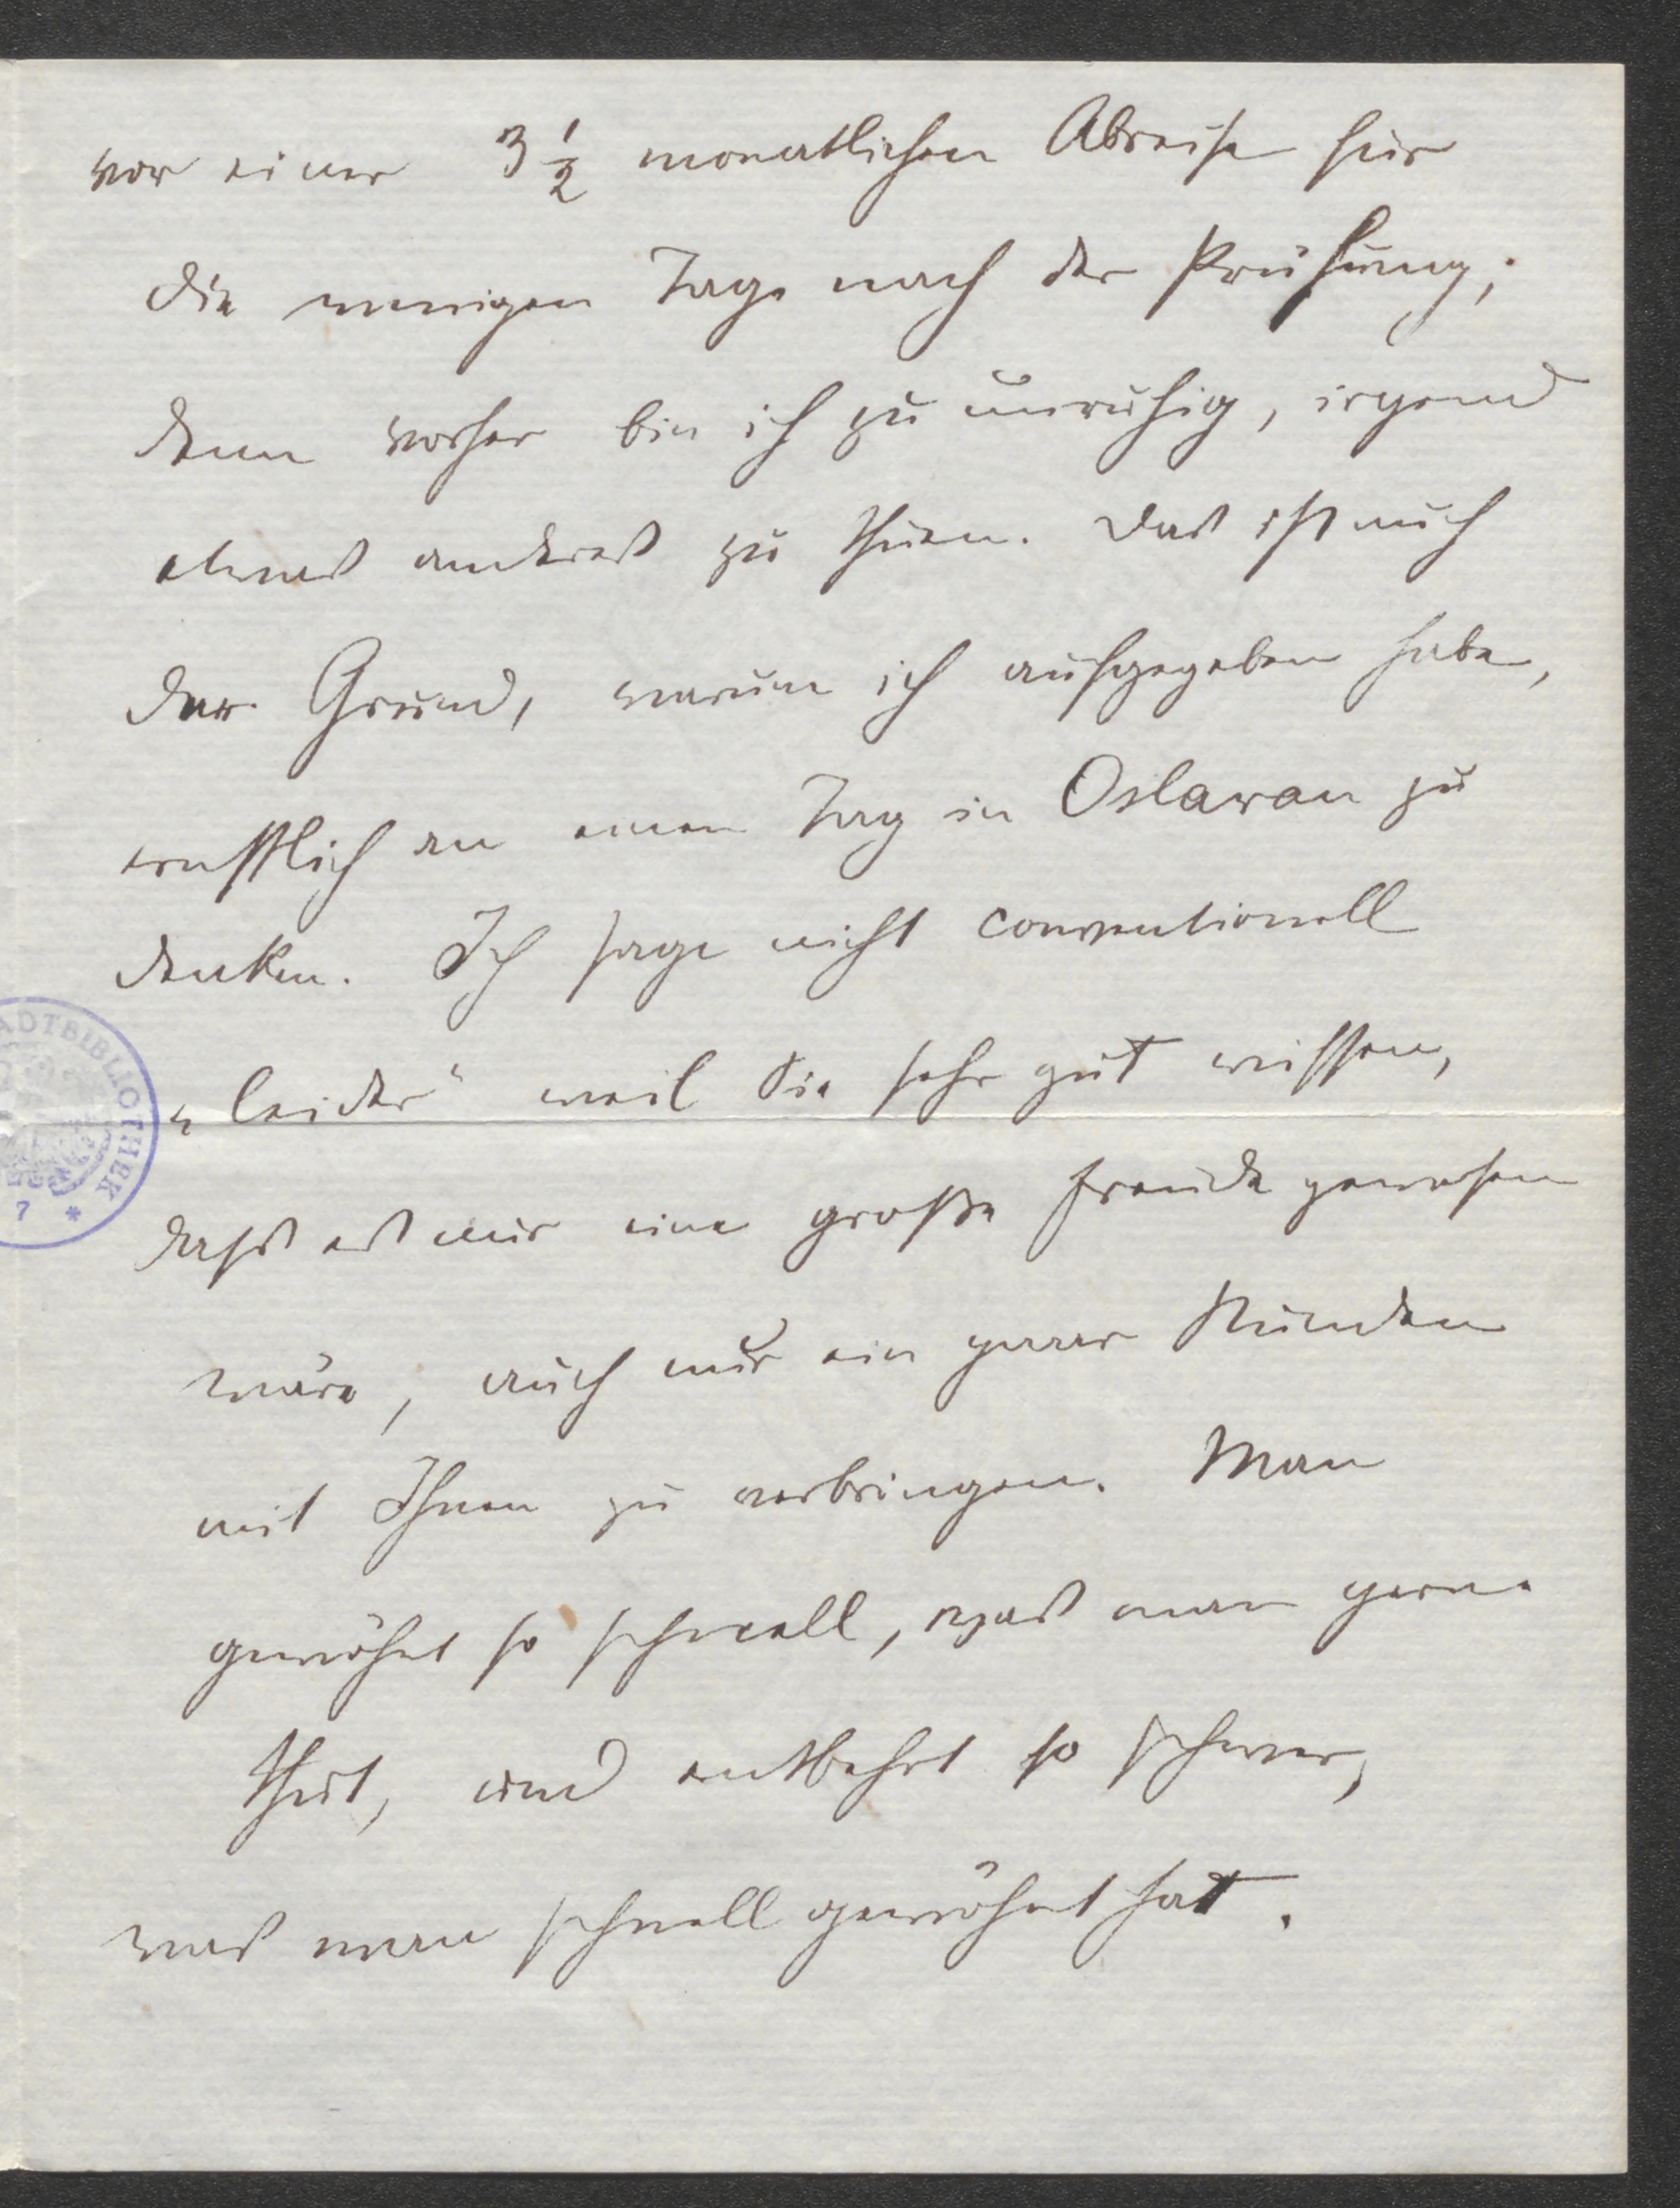 vor einer 3 1/2 monatlichen Abreise für
die wenigen Tage nach der Prüfung;
denn vorher bin ich zu unruhig, irgend
etwas anderes zu thuen. Das ist auch
der Grund, warum ich aufgegeben habe,
ernstlich an einen Tag in Oslawan zu
denken. Ich sage nicht conventionell
„leider“ weil Sie sehr gut wissen,
dass es mir eine große Freude gewesen
wäre, auch nur ein paar Stunden
mit Ihnen zu verbringen. Man
gewöhnt so schnell, was man gerne
thut, und entbehrt so schwer,
was man schnell gewöhnt hat.
ADTBIBLIOTHEK
7 *